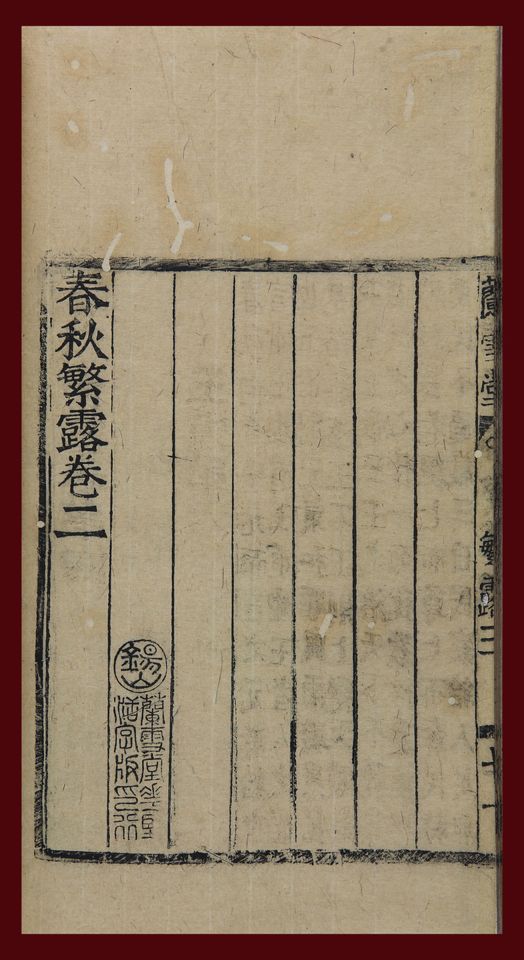 蘭雪堂
繁露二
十一
錫山
蘭雪堂華堅
活字版印行
春秋繁露卷二